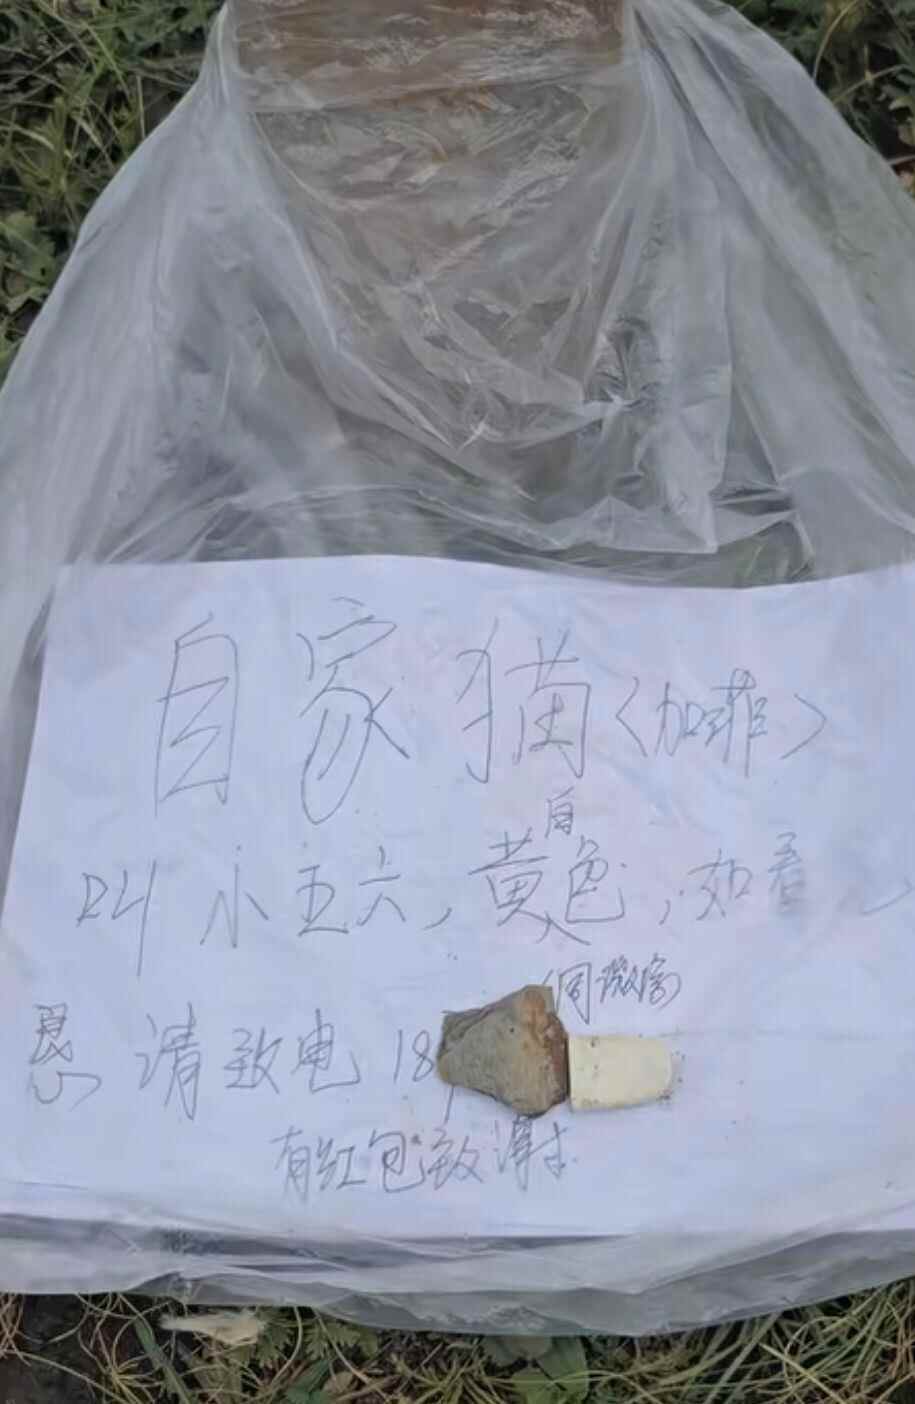 自家猫〈加菲〉
白
叫小五六，黄色，如看
同微信
恳请致电18
有红包致谢